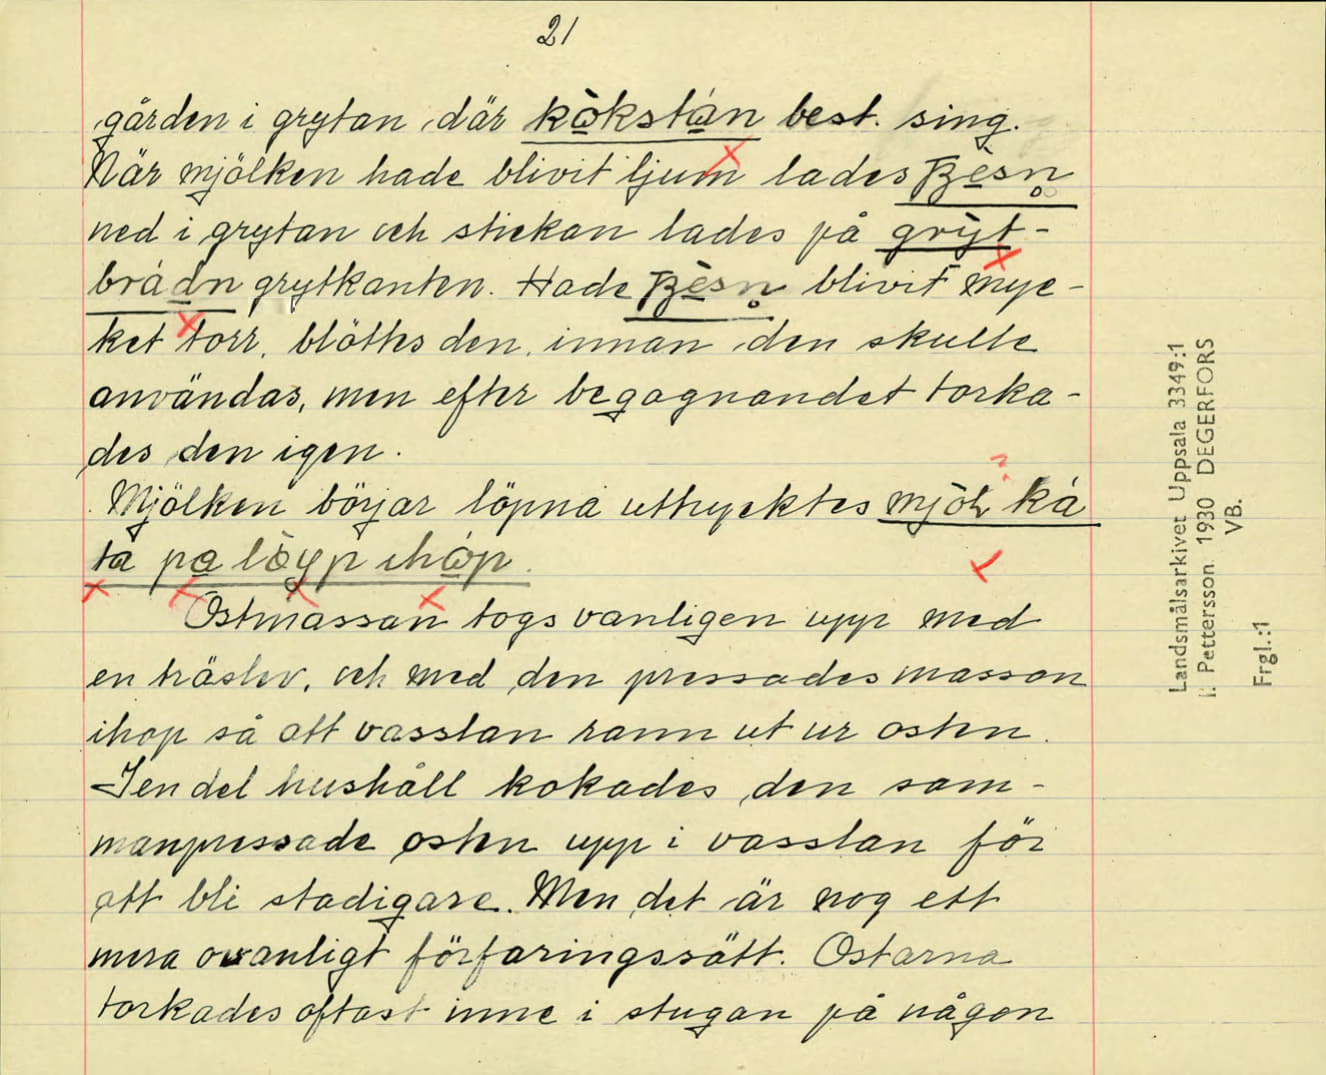 21
gården i grytan, där kòkstán best. sing.
När mjölken hade blivit ljum lades
ned i grytan och stickan lades på grỳt-
brádn grytkanten. Hade blivit myc-
ket torr, blöttes den, innan den skulle
användas, men efter begagnandet torka-
des den igen.
Mjölken börjar löpna uttrycktes mjö̀ɫka
ta pa lö̀yp ihóp.
Ostmassan togs vanligen upp med
en träslev, och med den pressades massan
ihop så att vasslan rann ut ur osten.
I en del hushåll kokades den sam-
manpressade osten upp i vasslan för
att bli stadigare. Men det är nog ett
mera ovanligt förfaringssätt. Ostarna
torkades oftast inne i stugan på någon
Landsmålsarkivet Uppsala 3349:1
I. Pettersson. 1930 DEGERFORS
VB.
Frgl.:1